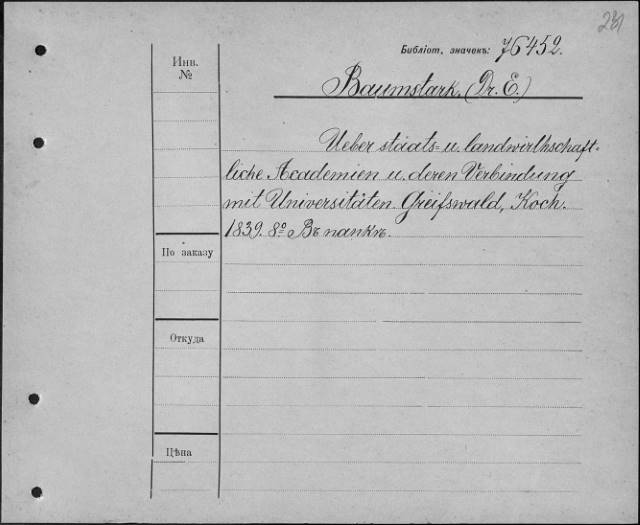 231
Библіот. значекъ: 76452.
Инв.
№
Baumstark. (Dr. E.)
Ueber staats- u. landwirthschaft-
liche Academien u. deren Verbindung
mit Universitäten. Greifswald, Koch.
1839. 8º Въ папкѣ.
По заказу
Откуда
Цѣна